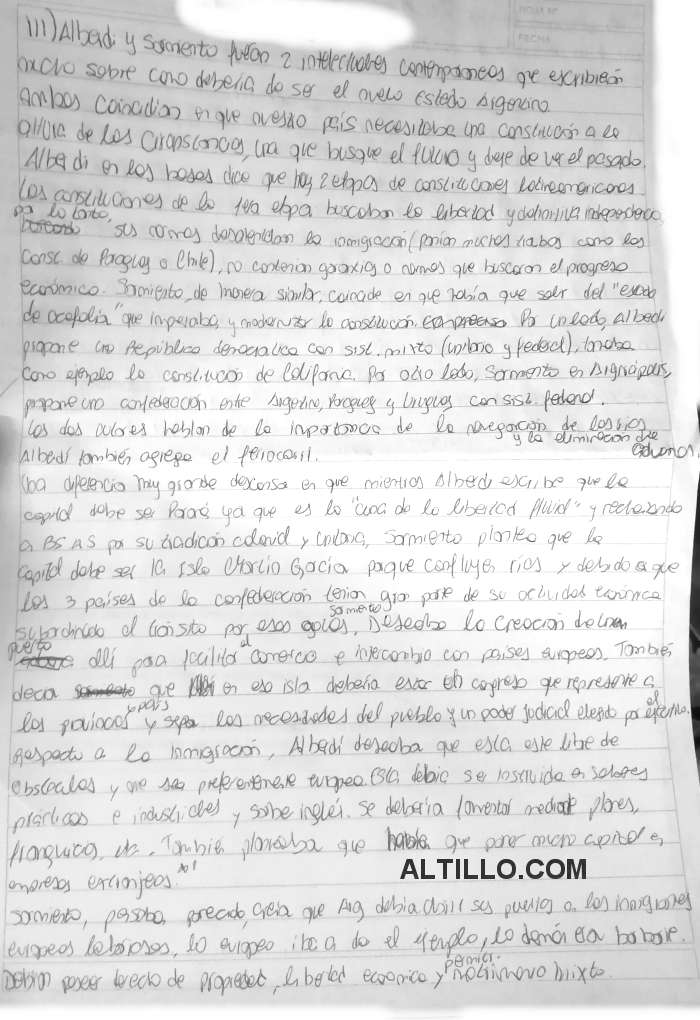 NOTA Nº
FECHA
III) Alberdi y Sarmiento fueron 2 intelectuales contemporaneos que escribieron
mucho sobre como debería de ser el nuevo Estado Argentino
Ambos coincidían en que nuestro país necesitaba una constitución a la
altura de las circunstancias, una que busque el futuro y deje de ver el pasado.
Alberdi en las bases dice que hay 2 etapas de constituciones latinoamericanas.
Las constituciones de la 1era etapa buscaban la libertad y definitiva independencia,
por lo tanto, sus normas desalentaban la inmigración (ponían muchas trabas como las
Const. de Paraguay o Chile), no contenían garantías o normas que buscaran el progreso
económico. Sarmiento, de manera similar, coincide en que había que salir del "estado
de acefalía" que imperaba, y modernizar la constitución. Por un lado, Alberdi
propone una República democrática con sist. mixto (unitario y federal), tomaba
como ejemplo la constitución de California. Por otro lado, Sarmiento en Argirópolis,
propone una confederación entre Argentina, Paraguay y Uruguay con sist. federal.
Los dos autores hablan de la importancia de la navegación de los ríos
y la eliminación de aduanas.
Alberdi también agrega el ferrocarril.
Una diferencia muy grande descansa en que mientras Alberdi escribe que la
capital debe ser Paraná ya que es la "cuna de la libertad fluvial" y rechazando
a BS AS por su tradición colonial y unitaria, Sarmiento plantea que la
capital debe ser la Isla Martín García porque confluyen ríos y debido a que
los 3 países de la confederación tenían gran parte de su actividad económica
subordinada al tránsito por esas aguas, Sarmiento Deseaba la creación de un
puerto allí para facilitar el comercio e intercambio con países europeos. También
decía que en esa isla debería estar el congreso que represente a
las provincias y países y sepa las necesidades del pueblo y un poder judicial elegido por el ejecutivo.
Respecto a la inmigración, Alberdi deseaba que esta este libre de
obstáculos y que sea preferentemente europea. Esta debía se instruida en saberes
prácticos e industriales y saber inglés. Se debería fomentar mediante planes,
franquicias, etc. También planteaba que había que poner mucho capital en
empresas extranjeras.
ALTILLO.COM
Sarmiento, pensaba parecido, creía que Arg debía abrir sus puertas a los inmigrantes
europeos laboriosos, lo europeo iba a dar el ejemplo, lo demás era barbarie.
Debían poseer derecho de propiedad, libertad económica y permitir matrimonio mixto.